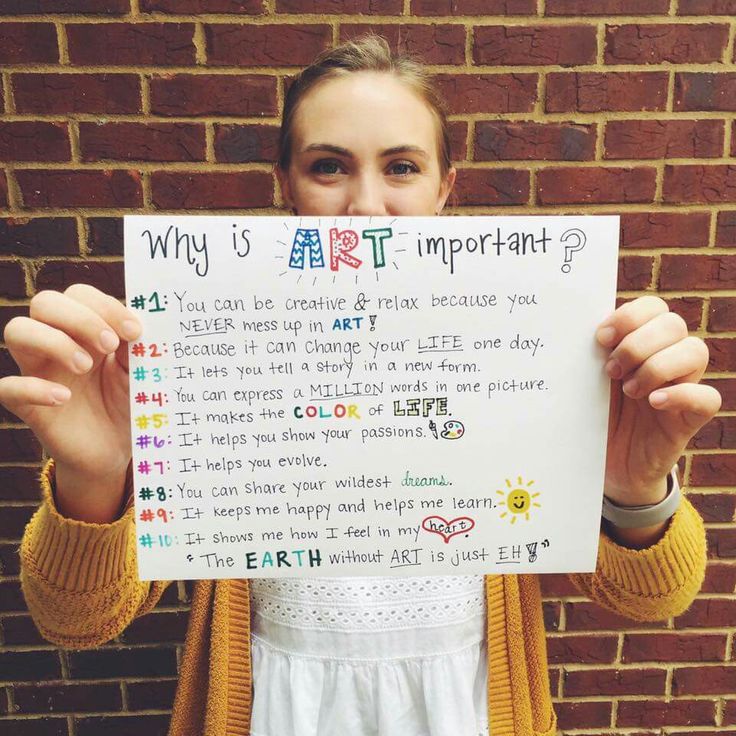 Why is ART important?
#1: You can be creative & relax because you
NEVER mess up in ART!
#2: Because it can change your LIFE one day.
#3: It lets you tell a story in a new form.
#4: You can express a MILLION words in one picture.
#5: It makes the COLOR of LIFE.
#6: It helps you show your passions.
#7: It helps you evolve.
#8: You can share your wildest dreams.
#9: It keeps me happy and helps me learn.
#10: It shows me how I feel in my heart.
"The EARTH without ART is just EH!"